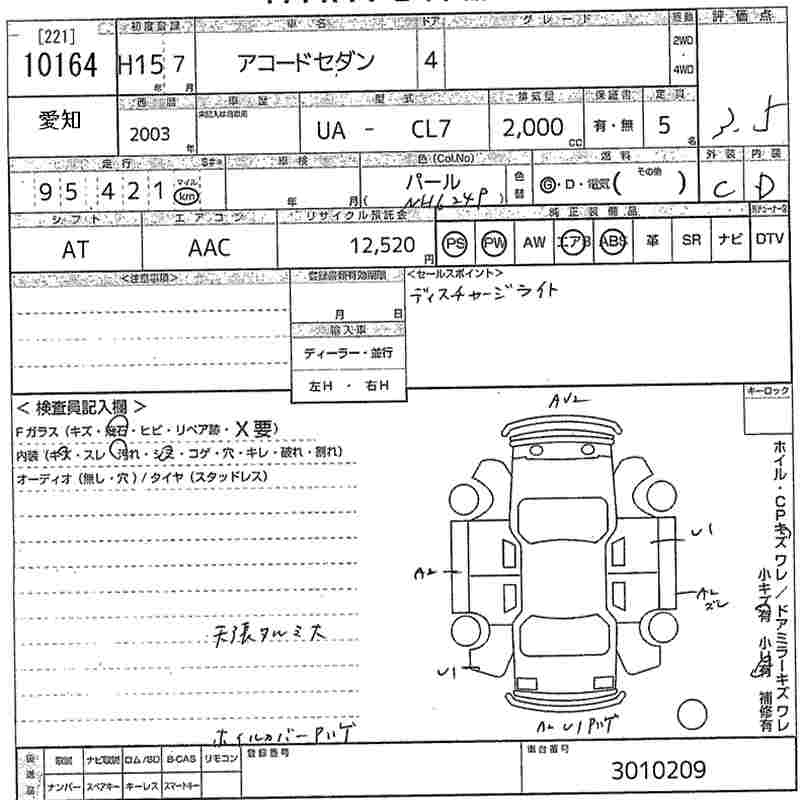 [221]
10164
初度登録
車 名
ドア
グ レ ー ド
駆動
評 価 点
H15 年 7 月
アコードセダン
4
2WD
・
4WD
愛知
西 暦
車 歴
型 式
排気量
保証書
定 員
2003 年
未記入は自家用
UA - CL7
2,000 cc
有・無
5 名
3.5
走 行
車 検
色(Col.No)
燃 料
外 装
内 装
95421
マイル
km
年 月
パール
(NH624P)
色替
G・D・電気(その他 )
C
D
シ フ ト
エ ア コ ン
リサイクル預託金
純 正 装 備 品
AT
AAC
12,520 円
PS PW AW エアB ABS 革 SR ナビ DTV
<注意事項>
登録書類有効期限
<セールスポイント>
月 日
ディスチャージライト
輸入車
ディーラー・並行
左H ・ 右H
キーロック
< 検査員記入欄 >
Fガラス(キズ・飛石・ヒビ・リペア跡・X要)
内装(キズ・スレ・汚れ・シミ・コゲ・穴・キレ・破れ・割れ)
オーディオ(無し・穴)/タイヤ(スタッドレス)
AU2
U1
A2
A2
ズレ
U1
A2 U1 Pハゲ
ホイル・CPキズ ワレ/ドアミラーキズ ワレ
小キズ有 小凹有 補修有
天張タルミ大
ホイルカバー Pハゲ
後送品
取説 ナビ取説 ロム/SD B-CAS リモコン
ナンバー スペアキー キーレス スマートキー
登録番号
車台番号
3010209